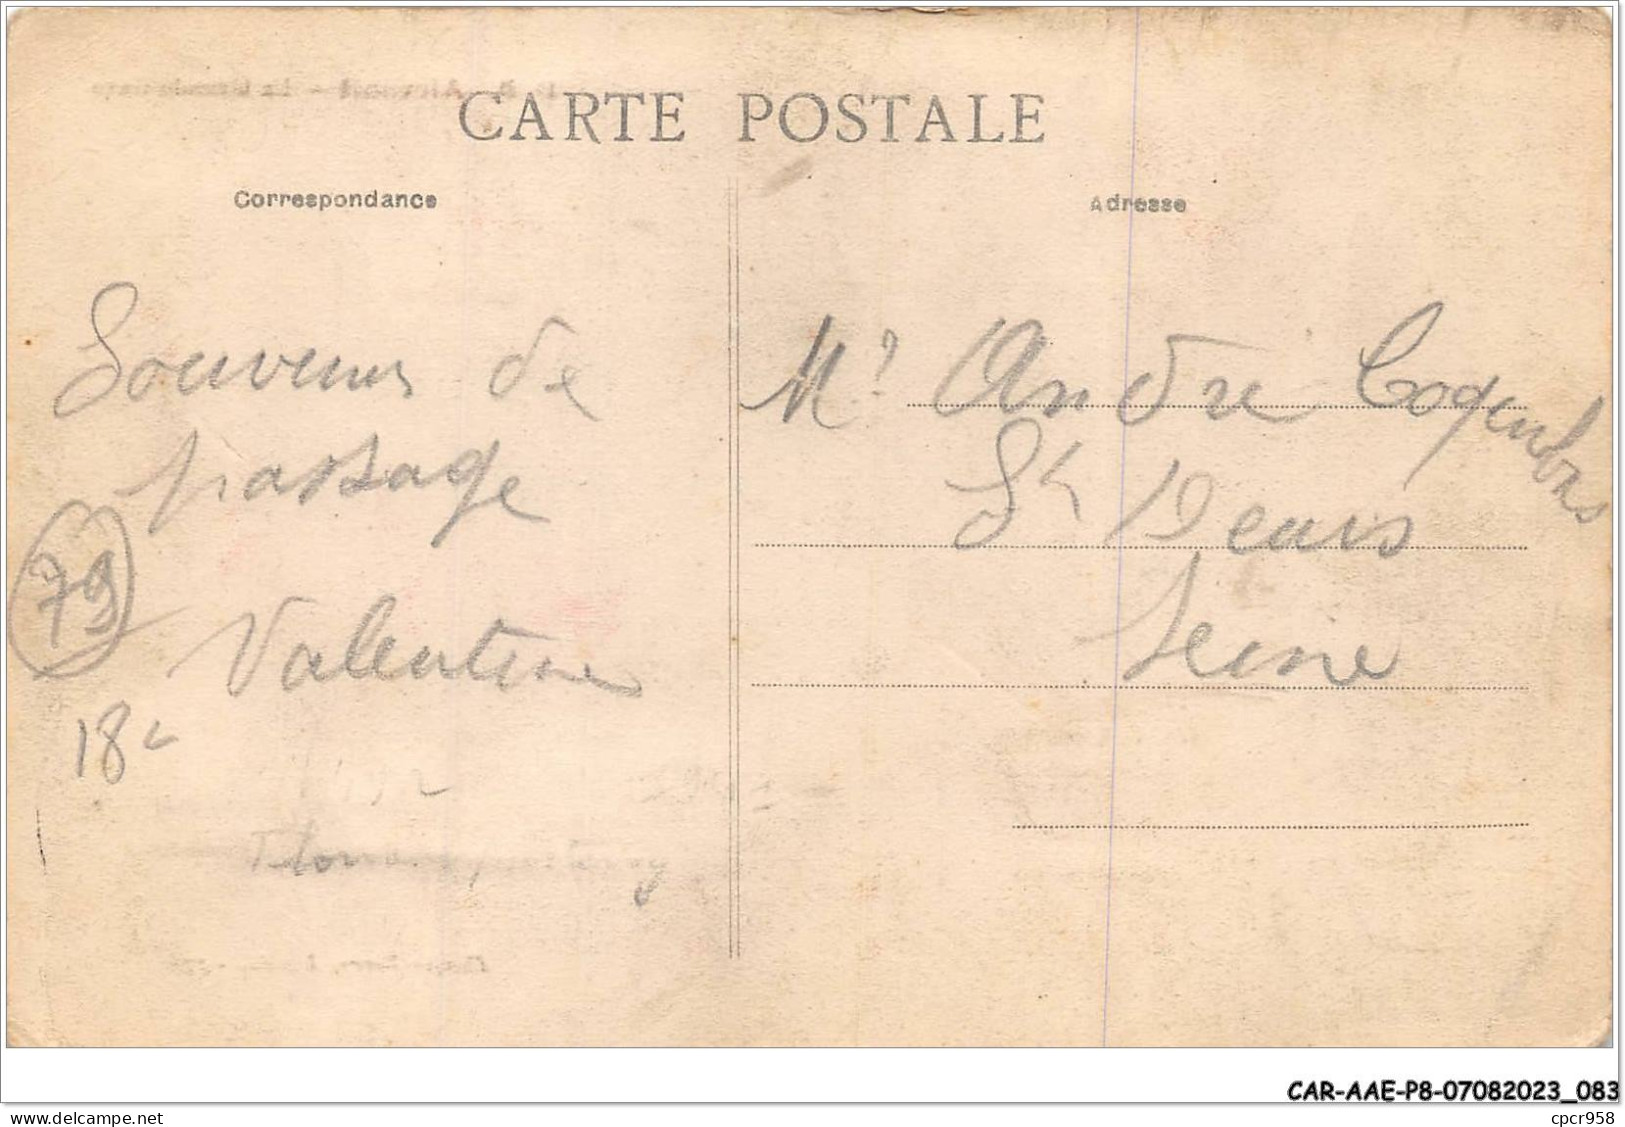 CARTE POSTALE
Correspondance
Adresse
Souvenir de
passage
Valentine
79
18
Mr André
St Denis
Seine
CAR-AAE-P8-07082023_083
www.delcampe.net
cpcr958